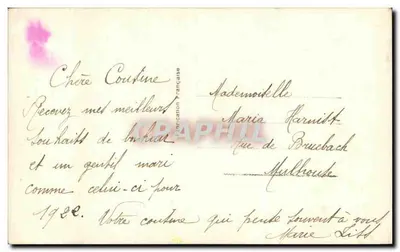 Chère Cousine
Recevez mes meilleurs
souhaits de bonheur
et un gentil mari
comme celui-ci pour
1922. Votre cousine qui pense souvent à vous
Marie
Fabrication Française
Mademoiselle
Maria Harnist
Rue de Bruebach
Mulhouse
CARAPHIL